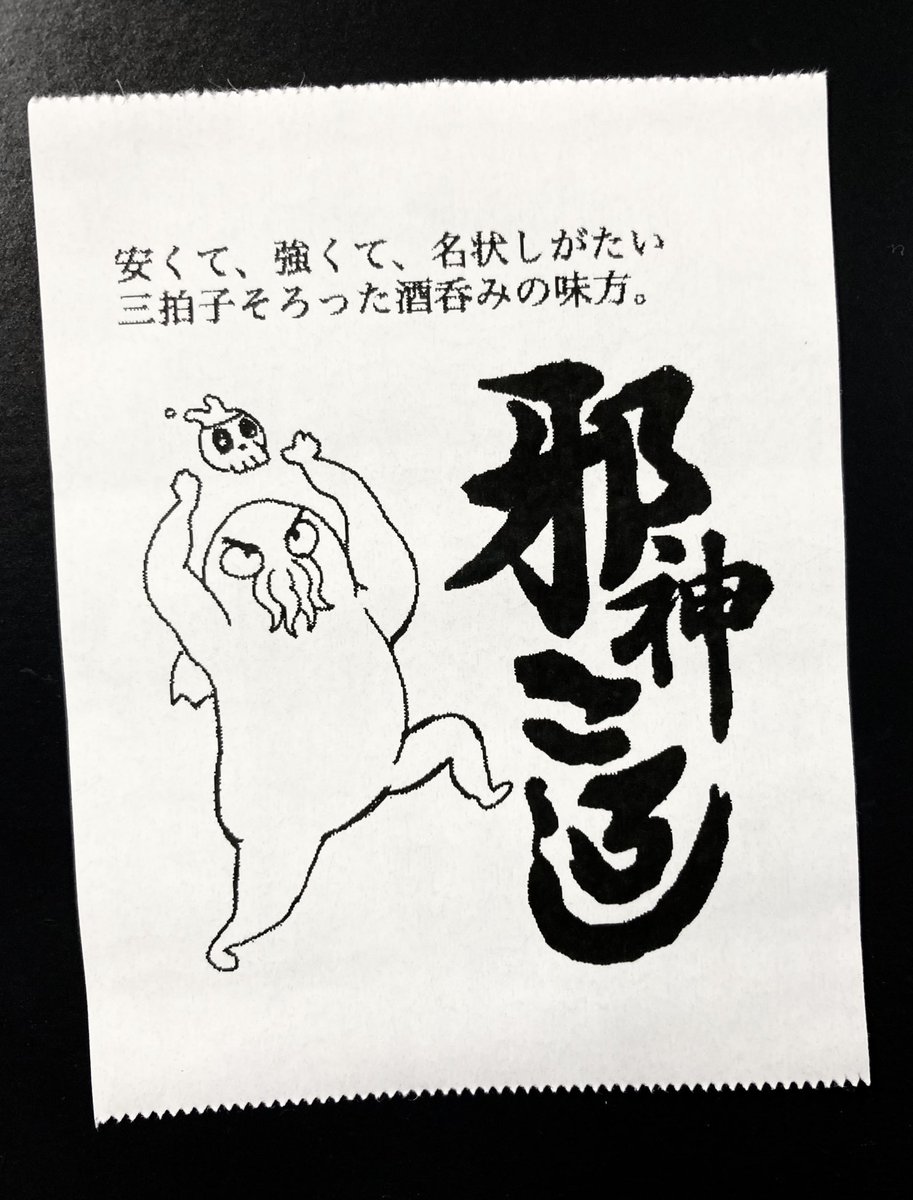 安くて、強くて、名状しがたい
三拍子そろった酒呑みの味方。
邪神ころし